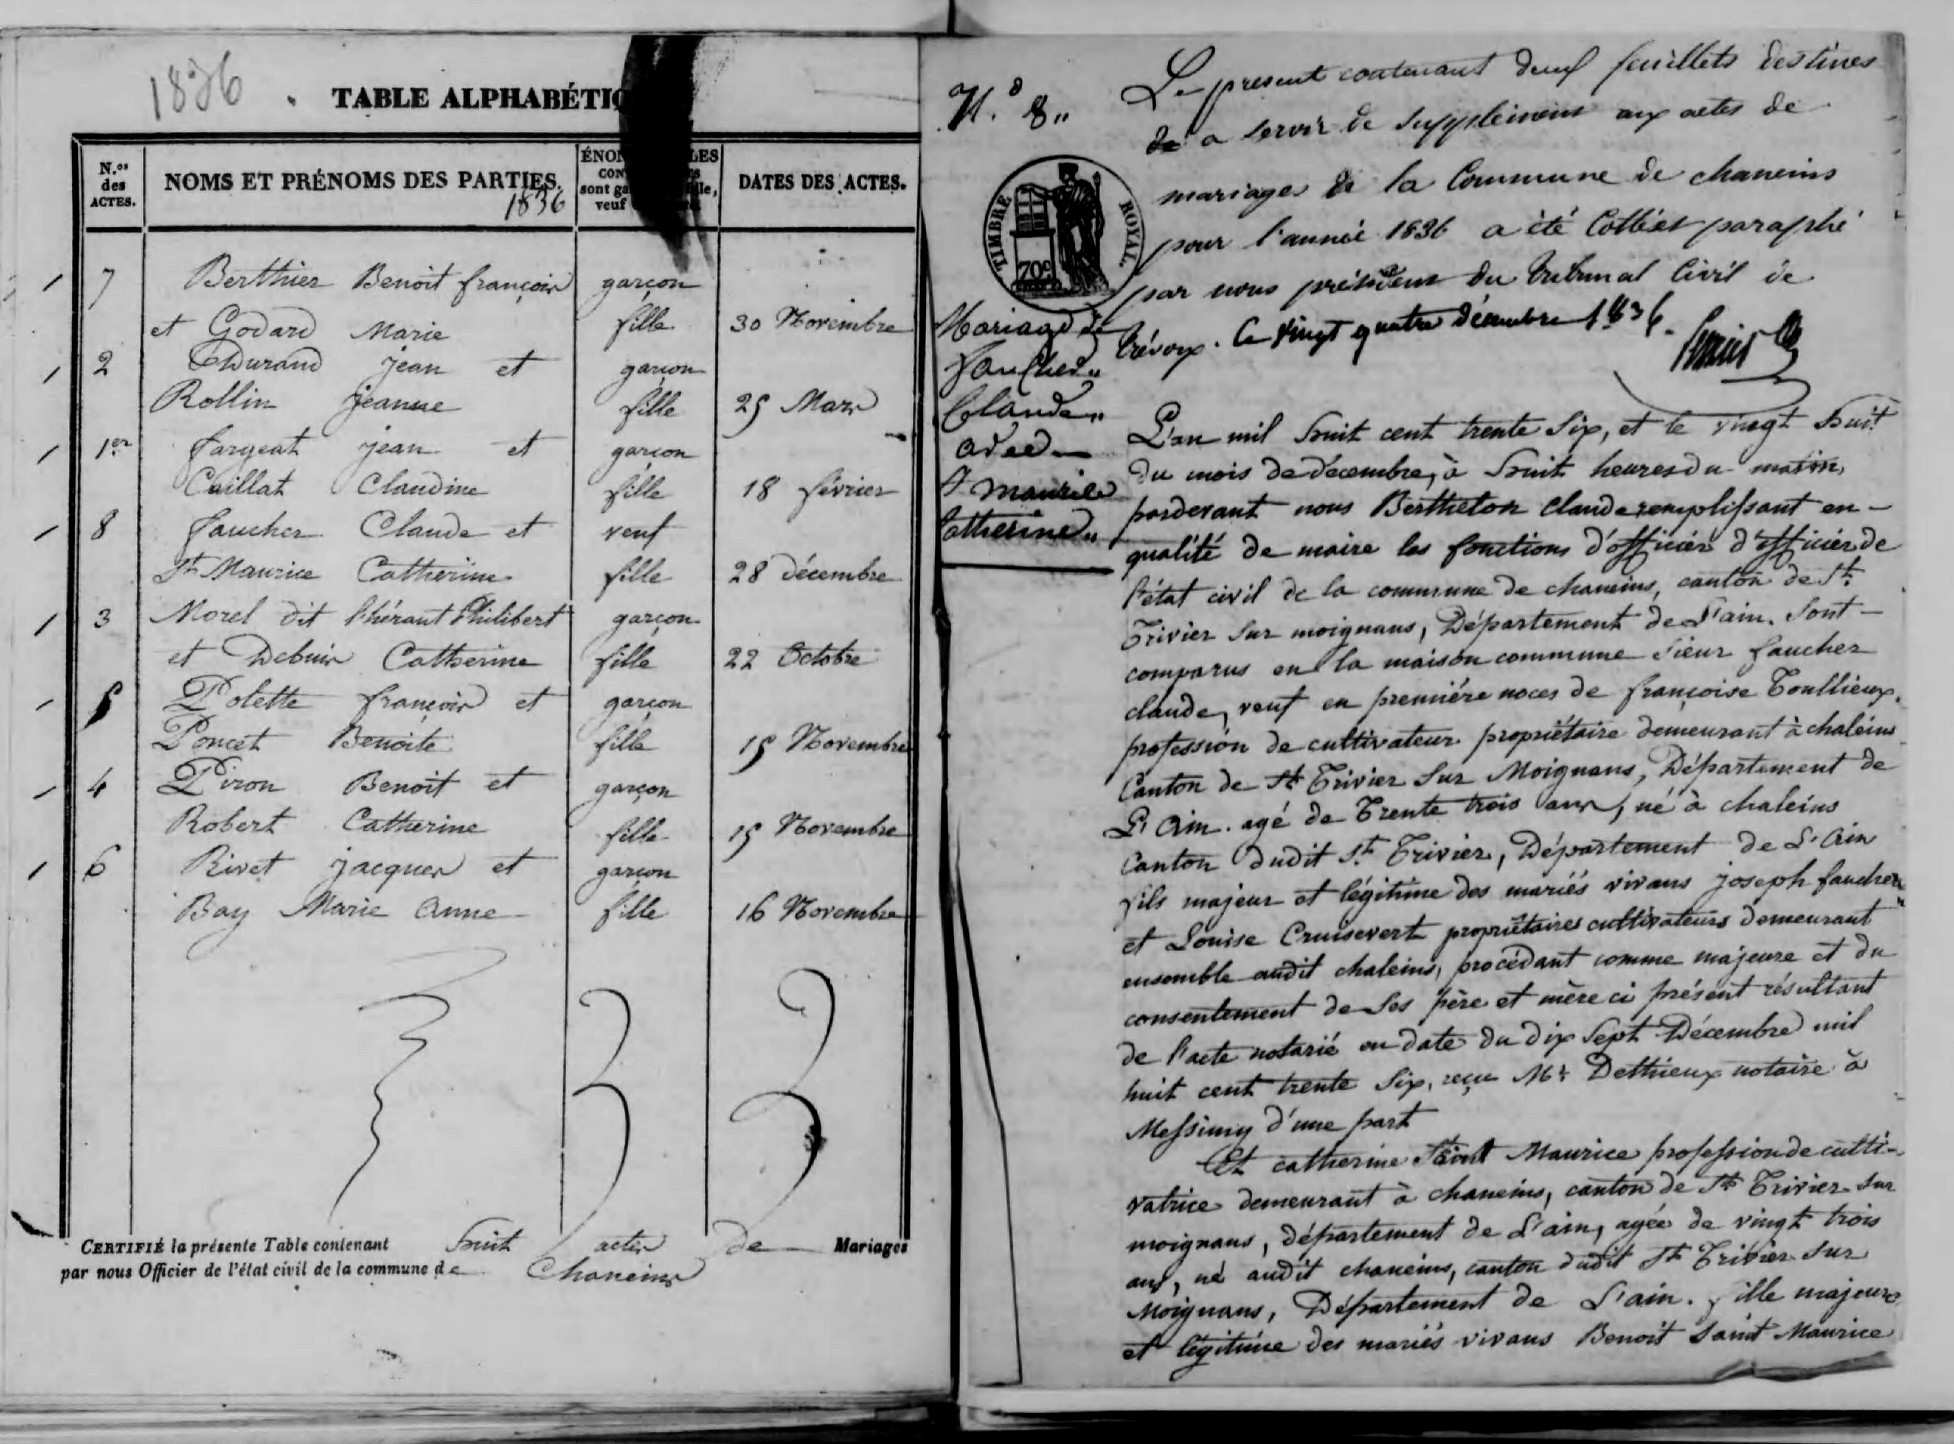 1836
TABLE ALPHABÉTIQ
N.os des ACTES.
NOMS ET PRÉNOMS DES PARTIES.
1836
DATES DES ACTES.
7 Berthier Benoit françois garçon
et Godard Marie fille 30 Novembre
2 Durand jean et garçon
Rollin jeanne fille 25 Mars
1er fargeat jean et garçon
Caillat Claudine fille 18 février
8 faucher Claude et veuf
St Maurice Catherine fille 28 décembre
3 Morel dit l'hérant Philibert garçon
et Debuir Catherine fille 22 Octobre
5 Polette françois et garçon
Poncet Benoite fille 15 Novembre
4 Piron Benoit et garçon
Robert Catherine fille 15 Novembre
6 Rivet jacques et garçon
Bay Marie Anne fille 16 Novembre
CERTIFIÉ la présente Table contenant huit actes de Mariages
par nous Officier de l'état civil de la commune de Chaneins
N.o 8
TIMBRE ROYAL.
70c
Mariage de
faucher
Claude
avec
St Maurice
Catherine
Le present contenant deux feuillets destines
de a servir de supplément aux actes de
mariages de la Commune de chaneins
pour l'année 1836 a été Cotté et paraphé
par nous président du tribunal Civil de
trévoux. le vingt quatre décembre 1836.
L'an mil huit cent trente six, et le vingt huit
du mois de décembre, à huit heures du matin,
pardevant nous Bertheton Claude remplissant en
qualité de maire les fonctions d'officier d'officier de
l'état civil de la commune de chaneins, canton de St
Trivier sur moignans, Département de L'ain. Sont
comparus en la maison commune sieur faucher
claude, veuf en première noces de françoise Toullieux,
profession de cultivateur propriétaire demeurant à chaleins
Canton de St Trivier sur Moignans, Département de
L'Ain. agé de Trente trois ans, né à chaleins
Canton dudit St Trivier, Département de L'Ain
fils majeur et légitime des mariés vivans joseph faucher
et Louise Cruisevert propriétaires cultivateurs demeurant
ensemble audit chaleins, procédant comme majeure et du
consentement de ses père et mère ci présent résultant
de l'acte notarié en date du dix sept Décembre mil
huit cent trente six, reçu Me Dethieux notaire à
Messimy d'une part
Et catherine Saint Maurice profession de culti-
vatrice demeurant à chaneins, canton de St Trivier sur
moignans, département de L'ain, agée de vingt trois
ans, né audit chaneins, canton dudit St Trivier sur
Moignans, Département de L'ain. fille majeure
et légitime des mariés vivans Benoit Saint Maurice